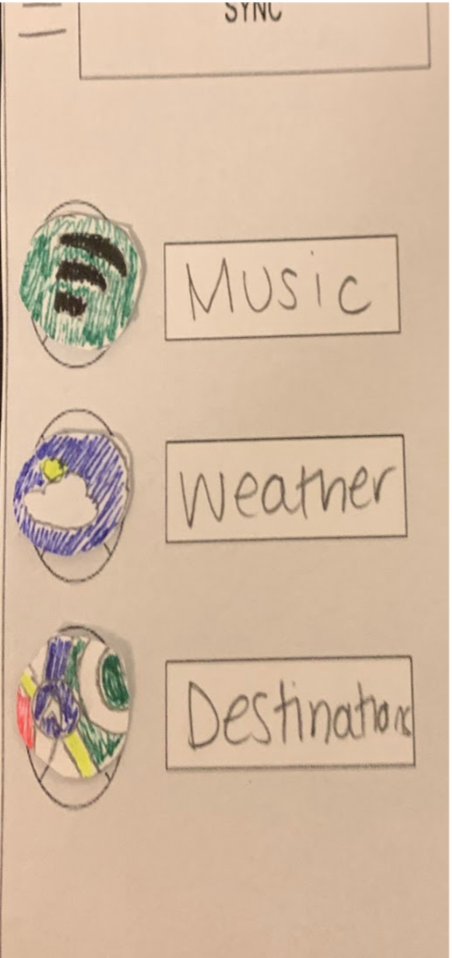 SYNC
Music
Weather
Destinations